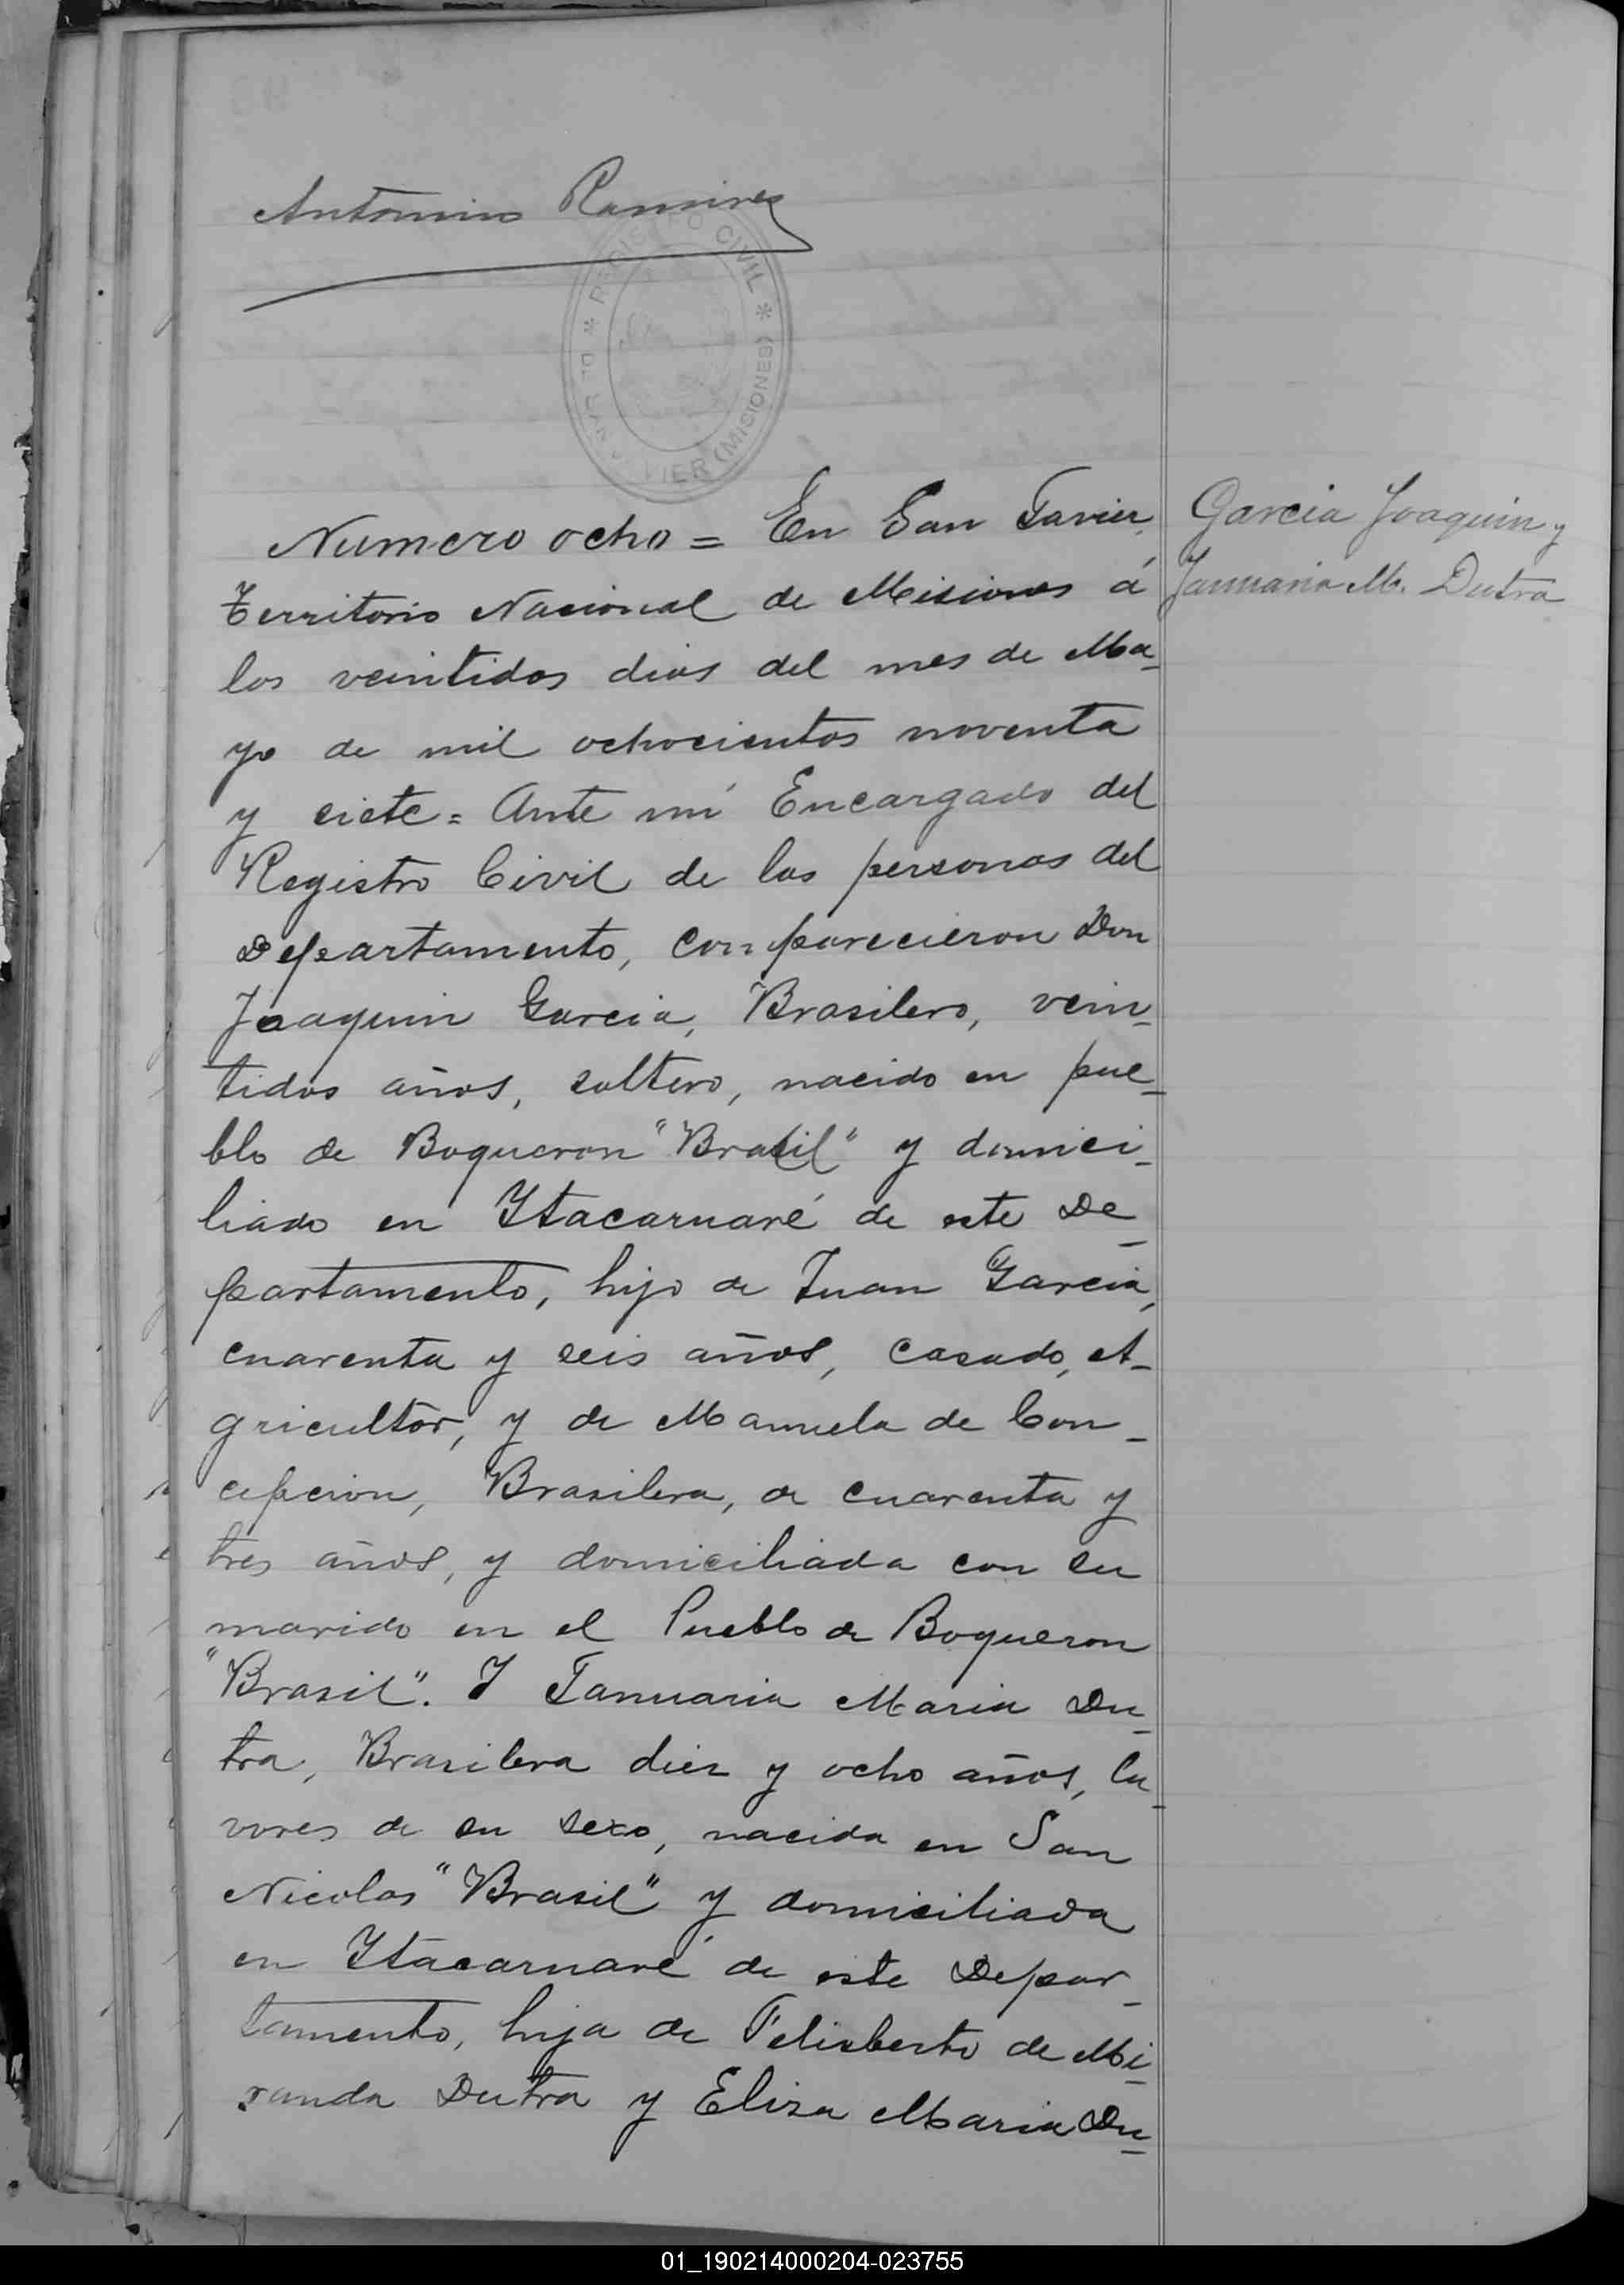 Antonino Ramirez
REGISTRO CIVIL * (MISIONES)
Numero ocho = En San Javier,
Territorio Nacional de Misiones á
los veintidos dias del mes de Ma-
yo de mil ochocientos noventa
y siete = Ante mi Encargado del
Registro Civil de las personas del
Departamento, comparecieron Don
Joaquin Garcia, Brasilero, vein-
tidos años, soltero, nacido en pue-
blo de Boqueron "Brasil" y domici-
liado en Itacaruaré de este De-
partamento, hijo de Juan Garcia,
cuarenta y seis años, casado, A-
gricultor, y de Manuela de Con-
cepcion, Brasilera, de cuarenta y
tres años, y domiciliada con su
marido en el Pueblo de Boqueron
"Brasil". Y Januaria Maria Du-
tra, Brasilera diez y ocho años, la-
vores de su sexo, nacida en San
Nicolas "Brasil" y domiciliada
en Itacaruaré de este Depar-
tamento, hija de Felisberto de Mi-
randa Dutra y Eliza Maria Du-
Garcia Joaquin y
Januaria M. Dutra
01_190214000204-023755